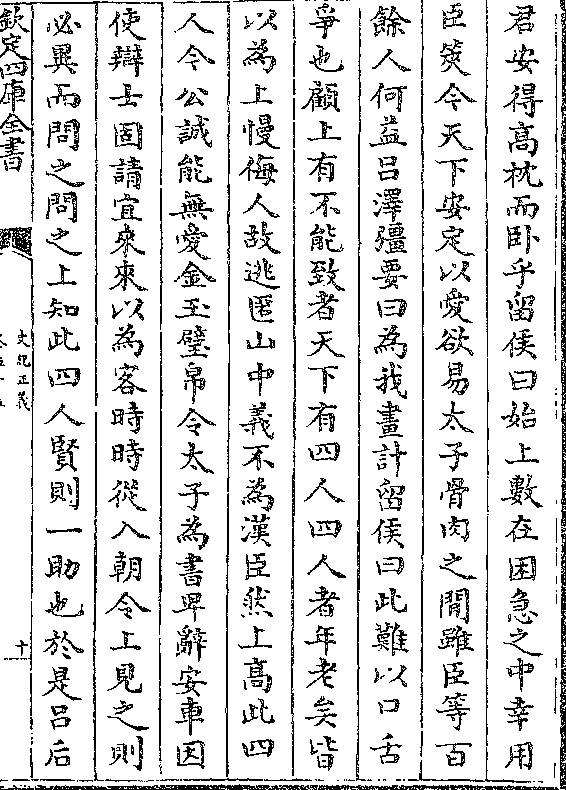 君安得髙枕而卧乎留侯曰始上數在困急之中幸用
臣筴今天下安定以愛欲易太子骨肉之間雖臣等百
餘人何益吕澤彊要曰為我畫計留侯曰此難以口舌
爭也顧上有不能致者天下有四人四人者年老矣皆
以為上慢侮人故逃匿山中義不為漢臣然上髙此四
人今公誠能無愛金玉璧帛令太子為書卑辭安車因
使辯士固請宜來來以為客時時從入朝令上見之則
必異而問之問之上知此四人賢則一助也於是吕后
欽定四庫全書
史記正義
十